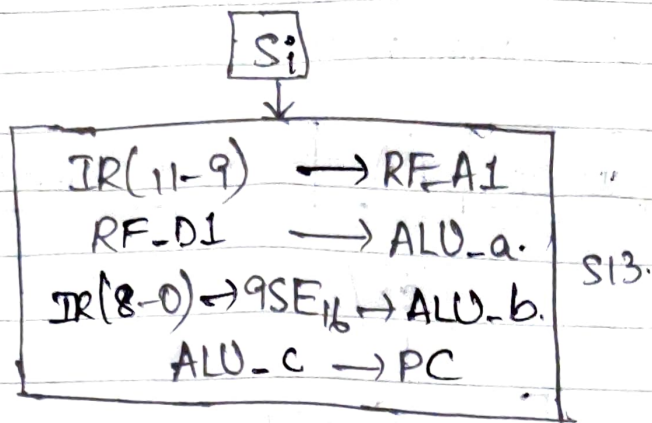 Si
IR(11-9) → RF_A1
RF_D1 → ALU_a.
IR(8-0) → 9SE16 → ALU_b.
ALU_c → PC
S13.